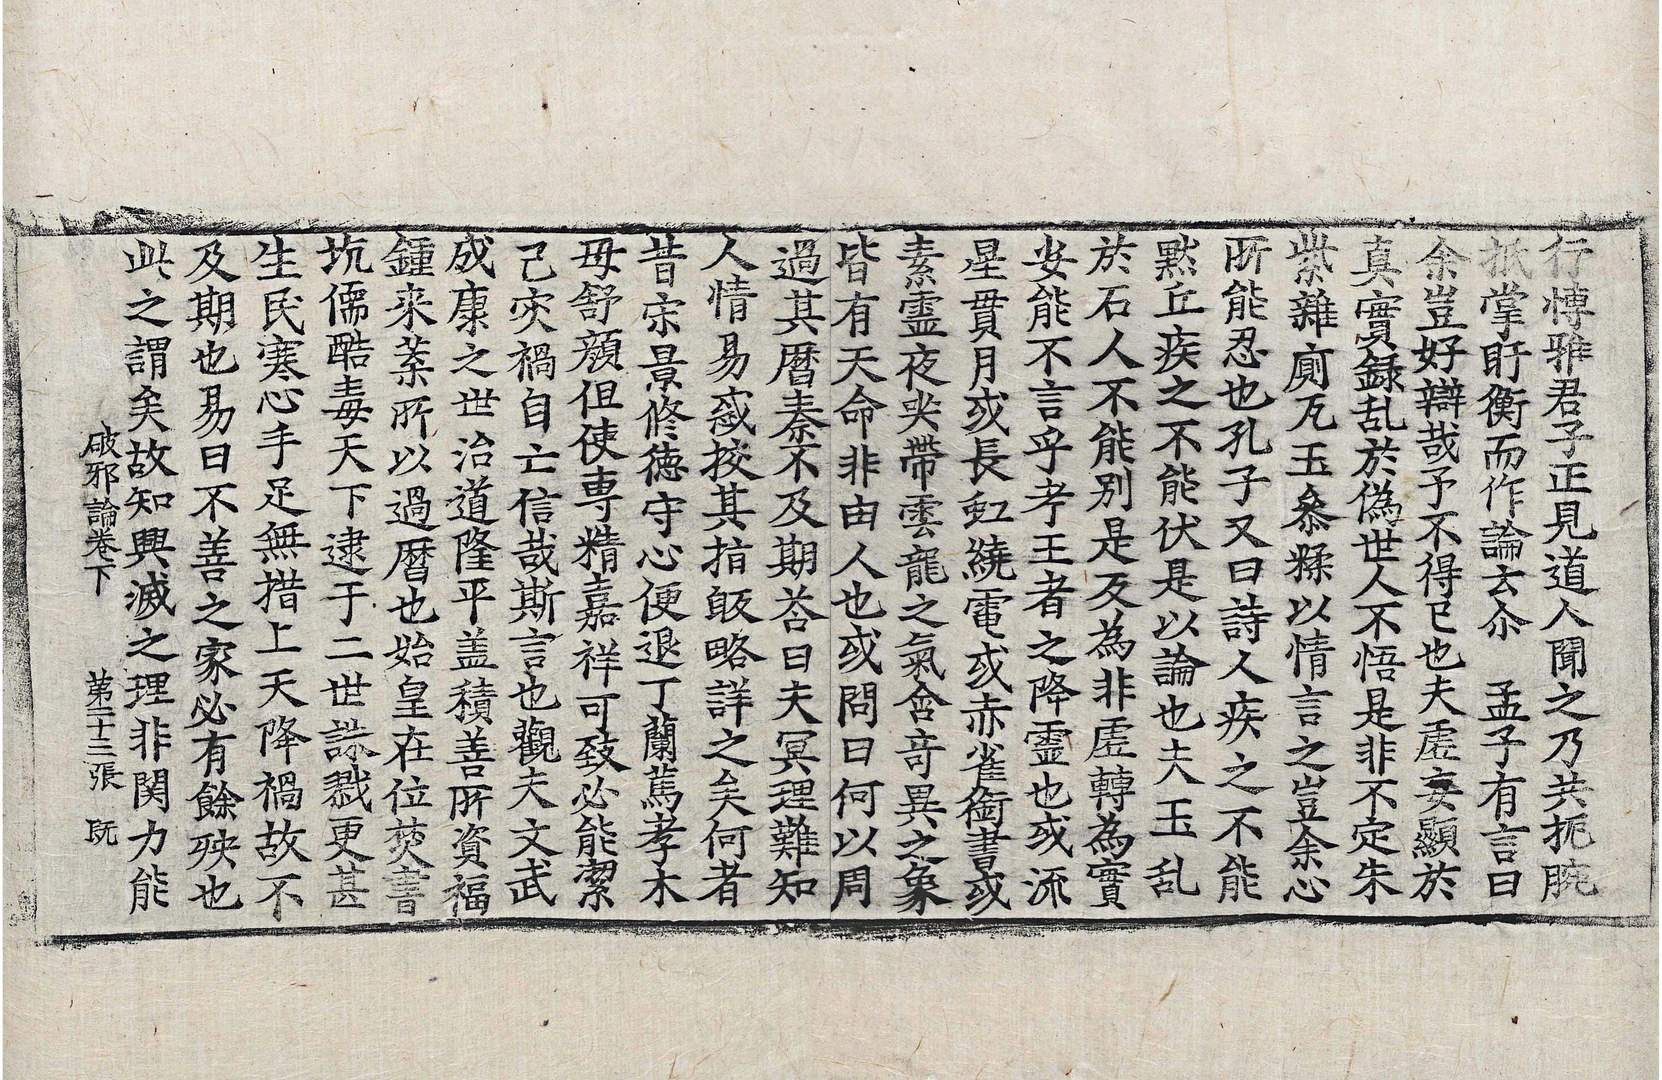 行愽雅君子正見道人聞之乃共扼腕
抵掌盱衡而作論云尒 孟子有言曰
余豈好辯哉予不得已也夫虛妄顯於
真實録乱於偽世人不悟是非不定朱
紫雜廁瓦玉叅糅以情言之豈余心
所能忍也孔子又曰詩人疾之不能
黙丘疾之不能伏是以論也夫玉乱
於石人不能別是反為非虛轉為實
安能不言乎考王者之降靈也或流
星貫月或長虹繞電或赤雀銜書或
素靈夜哭帶雲龍之氣含竒異之象
皆有天命非由人也或問曰何以周
過其曆秦不及期荅曰夫冥理難知
人情易惑挍其指皈略詳之矣何者
昔宋景修徳守心便退丁蘭蔦孝木
母舒顔但使専精嘉祥可致必能潔
己灾禍自亡信哉斯言也觀夫文武
成康之世治道隆平盖積善所資福
鍾来葉所以過曆也始皇在位焚書
坑儒酷毒天下逮于二世誅戮更甚
生民寒心手足無措上天降禍故不
及期也易曰不善之家必有餘殃也
此之謂矣故知興滅之理非関力能
破邪論卷下 第二十三張 旣